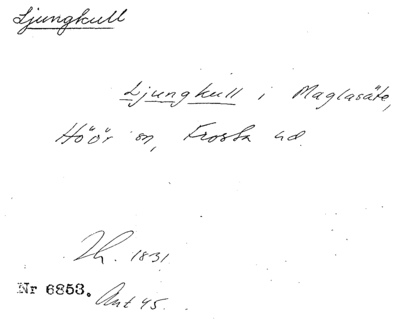 Ljungkull
Ljungkull i Maglasäte,
Höör sn, Frosta hd.
Th. 1831
Nr 6853. Ant 45.